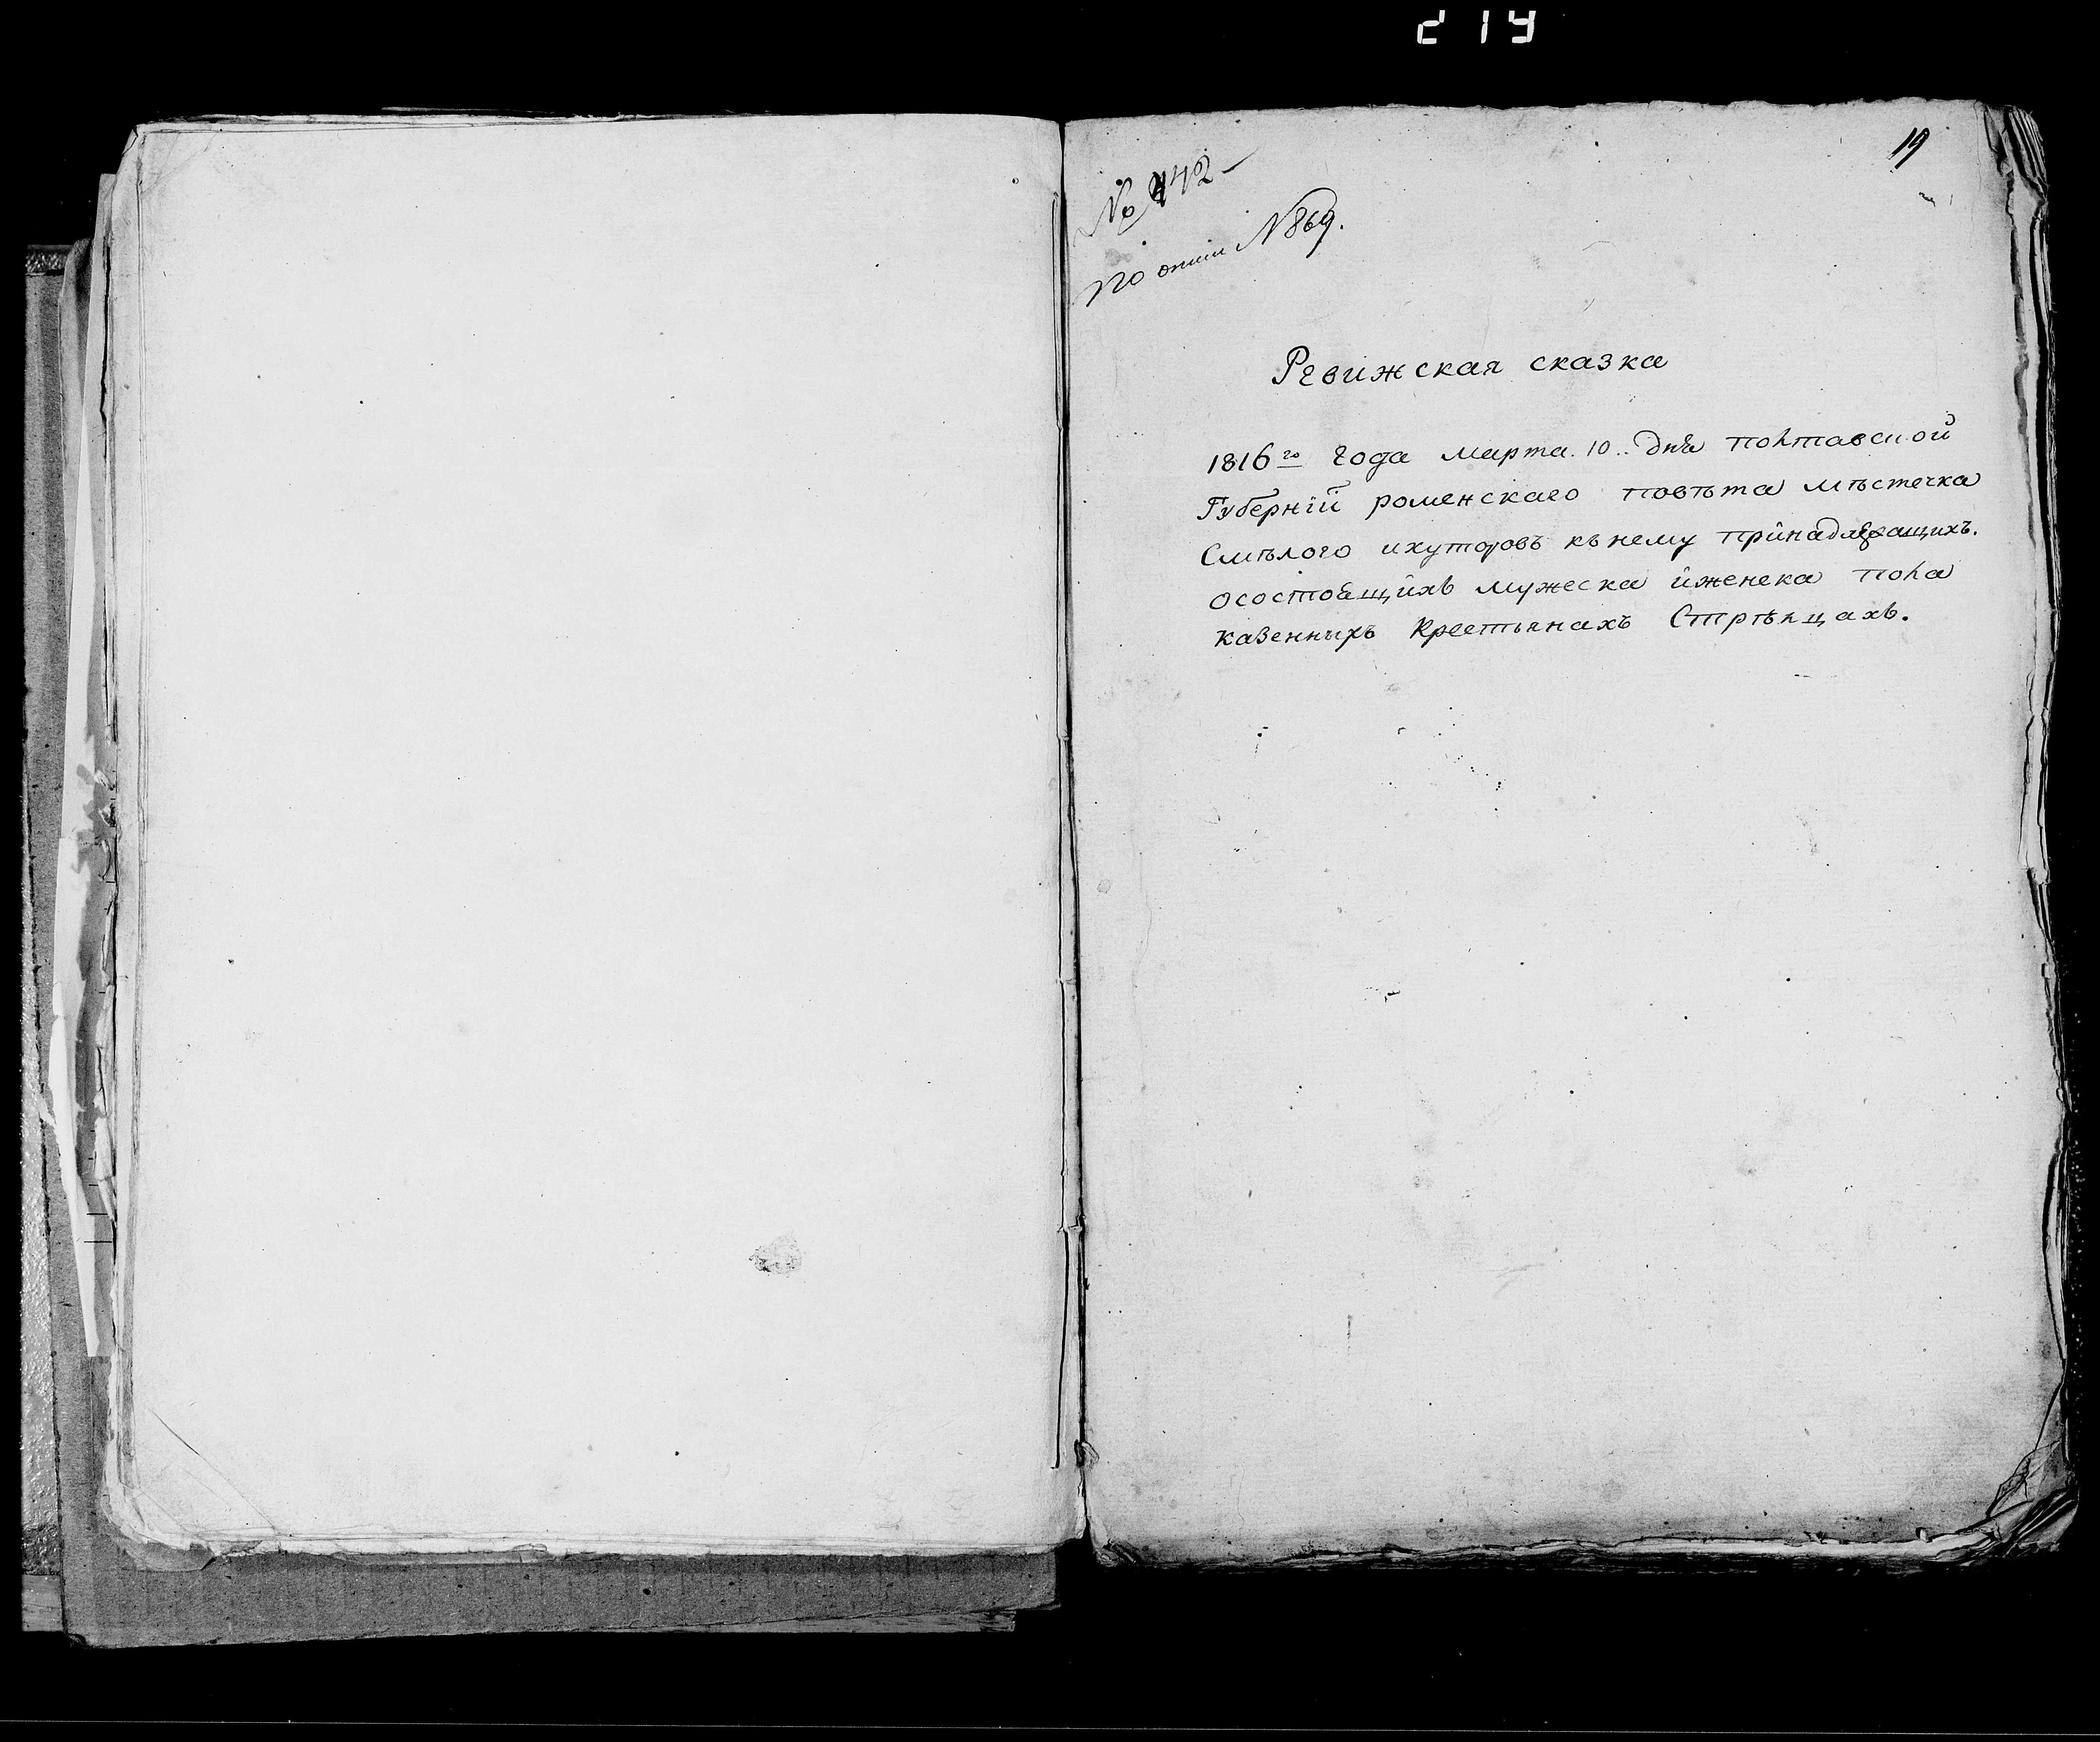 219
19
№ 442
по описи N 869.
Ревижская сказка
1816го года марта. 10.. дня полтавской
Губернїй роменскаго повѣта мѣстечка
Смѣлого ихуторовъ кънему принадлежащихъ.
осостоящихъ мужеска иженска пола
казенныхъ крестьянахъ Стрѣлцахъ.